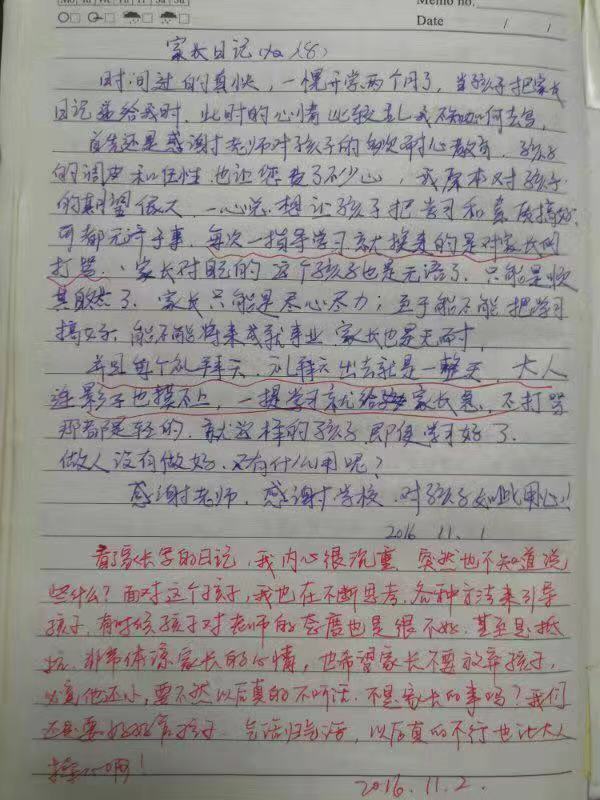 Mo Tu We Th Fr Sa Su
Memo no.
Date / /
家长日记(女人8)
时间过的真快，一愰开学两个月了，当孩子把家长
日记递给我时，此时的心情比较乱我不知如何去写，
首先还是感谢老师对孩子的多次耐心教育，孩子
的调皮和任性也让您费了不少心，我原本对孩子
的期望很大，一心想让孩子把学习和素质搞好
可都无济于事，每次一指导学习就换来的是对家长的
打骂，家长对眼的这个孩子也是无语了，只能是顺
其自然了，家长只能是尽心尽力；至于能不能把学习
搞好，能不能将来成就事业家长也是无耐，
并且每个礼拜天，礼拜天出去就是一整天，大人
连影子也摸不上，一提学习就给家长急，不打骂
那都是轻的，就这样的孩子即便学习好了，
做人没有做好，又有什么用呢？
感谢老师，感谢学校，对孩子如此用心！
2016 11. 1
看了家长写的日记，我内心很沉重，突然也不知道说
些什么？面对这个孩子，我也在不断思考，各种方法来引导
孩子，有时候孩子对老师的态度也是很不好，甚至是抵
抗，非常体谅家长的心情，也希望家长不要放弃孩子，
必竟他还小，要不然以后真的不听话，不是家长的事吗？我们
还是要好好管孩子，气话归气话，以后真的不行也让大人
心啊！
2016.11.2.